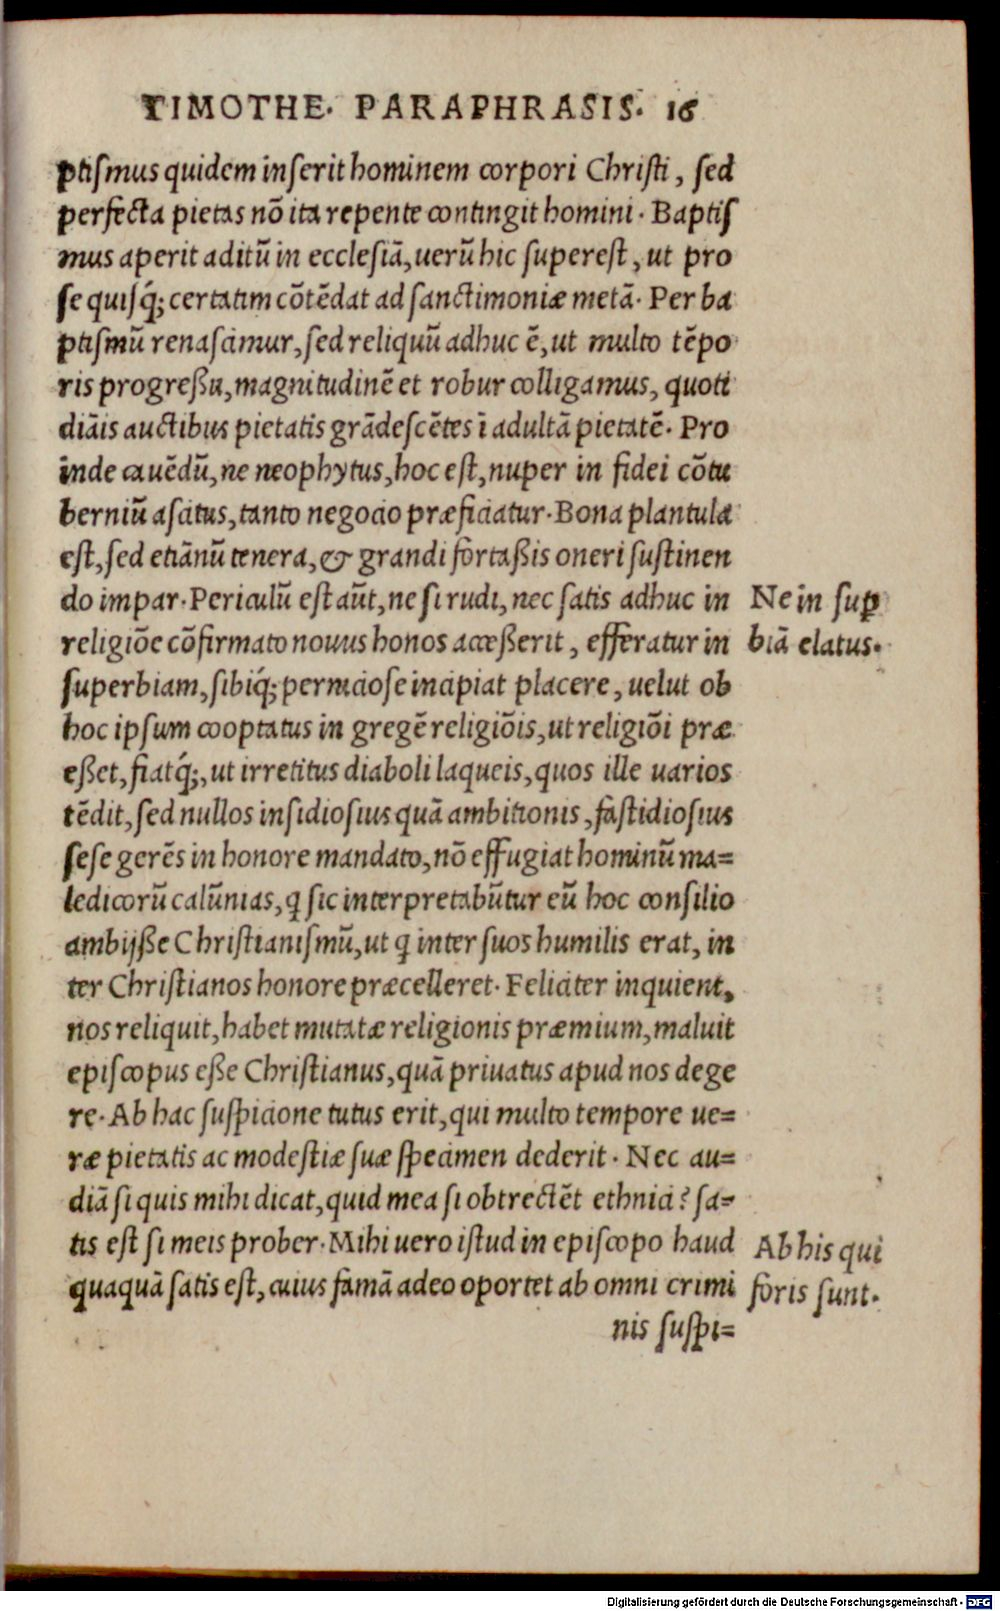 TIMOTHE. PARAPHRASIS. 16
ptiſmus quidem inſerit hominem corpori Chriſti, ſed
perfecta pietas nō ita repente contingit homini. Baptiſ
mus aperit aditū in ecclesiā, uerū hic ſupereſt, ut pro
ſe quiſq́; certatim cōtēdat ad ſanctimoniæ metā. Per ba
ptiſmū renaſcimur, ſed reliquū adhuc ē, ut multo tēpo
ris progreßu, magnitudinē et robur colligamus, quoti
diāis auctibus pietatis grādeſcētes ī adultā pietatē. Pro
inde cauēdū, ne neophytus, hoc eſt, nuper in fidei cōtu
berniū aſcitus, tanto negocio præficiatur. Bona plantula
eſt, ſed etiānū tenera, & grandi fortaßis oneri ſuſtinen
do impar. Periculū eſt aūt, ne ſi rudi, nec ſatis adhuc in
Ne in ſuꝑ
religiōe cōfirmato nouus honos acceßerit, efferatur in
biā elatus.
ſuperbiam, ſibiq́; perniciose incipiat placere, uelut ob
hoc ipſum cooptatus in gregē religiōis, ut religiōi præ
eßet, fiatq́;, ut irretitus diaboli laqueis, quos ille uarios
tēdit, ſed nullos inſidioſius quā ambitionis, faſtidioſius
ſeſe gerēs in honore mandato, nō effugiat hominū ma=
ledicorū calūnias, q ſic interpretabūtur eū hoc conſilio
ambijße Chriſtianiſmū, ut q inter ſuos humilis erat, in
ter Chriſtianos honore præcelleret. Feliciter inquient,
nos reliquit, habet mutatæ religionis præmium, maluit
epiſcopus eße Chriſtianus, quā priuatus apud nos dege
re. Ab hac ſuſpicione tutus erit, qui multo tempore ue=
ræ pietatis ac modeſtiæ ſuæ ſpecimen dederit. Nec au=
diā ſi quis mihi dicat, quid mea ſi obtrectēt ethnici? ſa=
tis eſt ſi meis prober. Mihi uero iſtud in epiſcopo haud
Ab his qui
quaquā ſatis eſt, cuius famā adeo oportet ab omni crimi
foris ſunt.
nis ſuſpi=
Digitalisierung gefördert durch die Deutsche Forschungsgemeinschaft - DFG